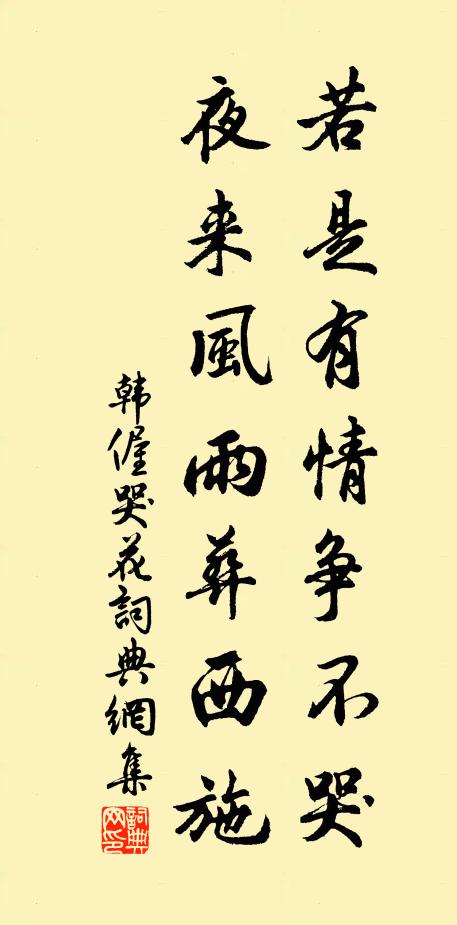 若是有情争不哭
夜来風雨葬西施
韩偓哭花詞典網集
詞典網印